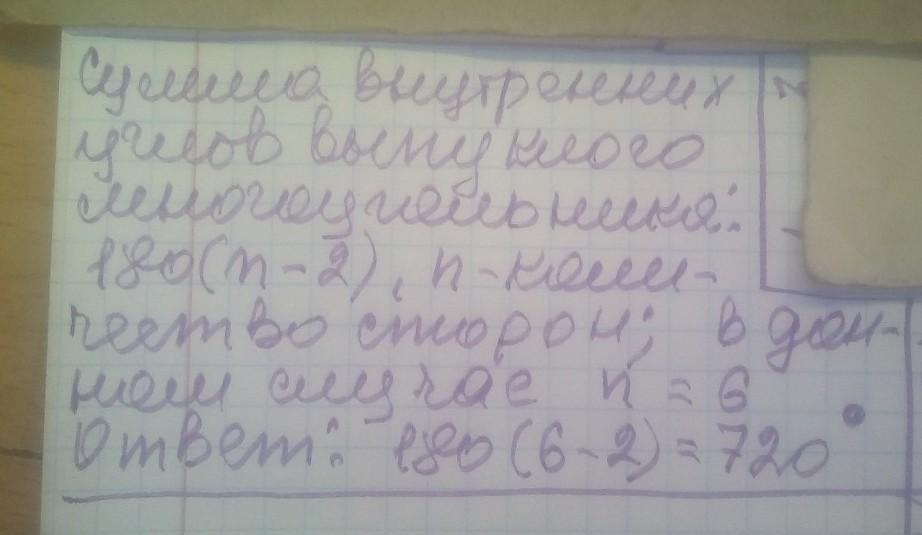 Сумма внутренних
углов выпуклого
многоугольника:
180(n-2), n-коли-
чество сторон; в дан-
ном случае n = 6
Ответ: 180(6-2)=720°